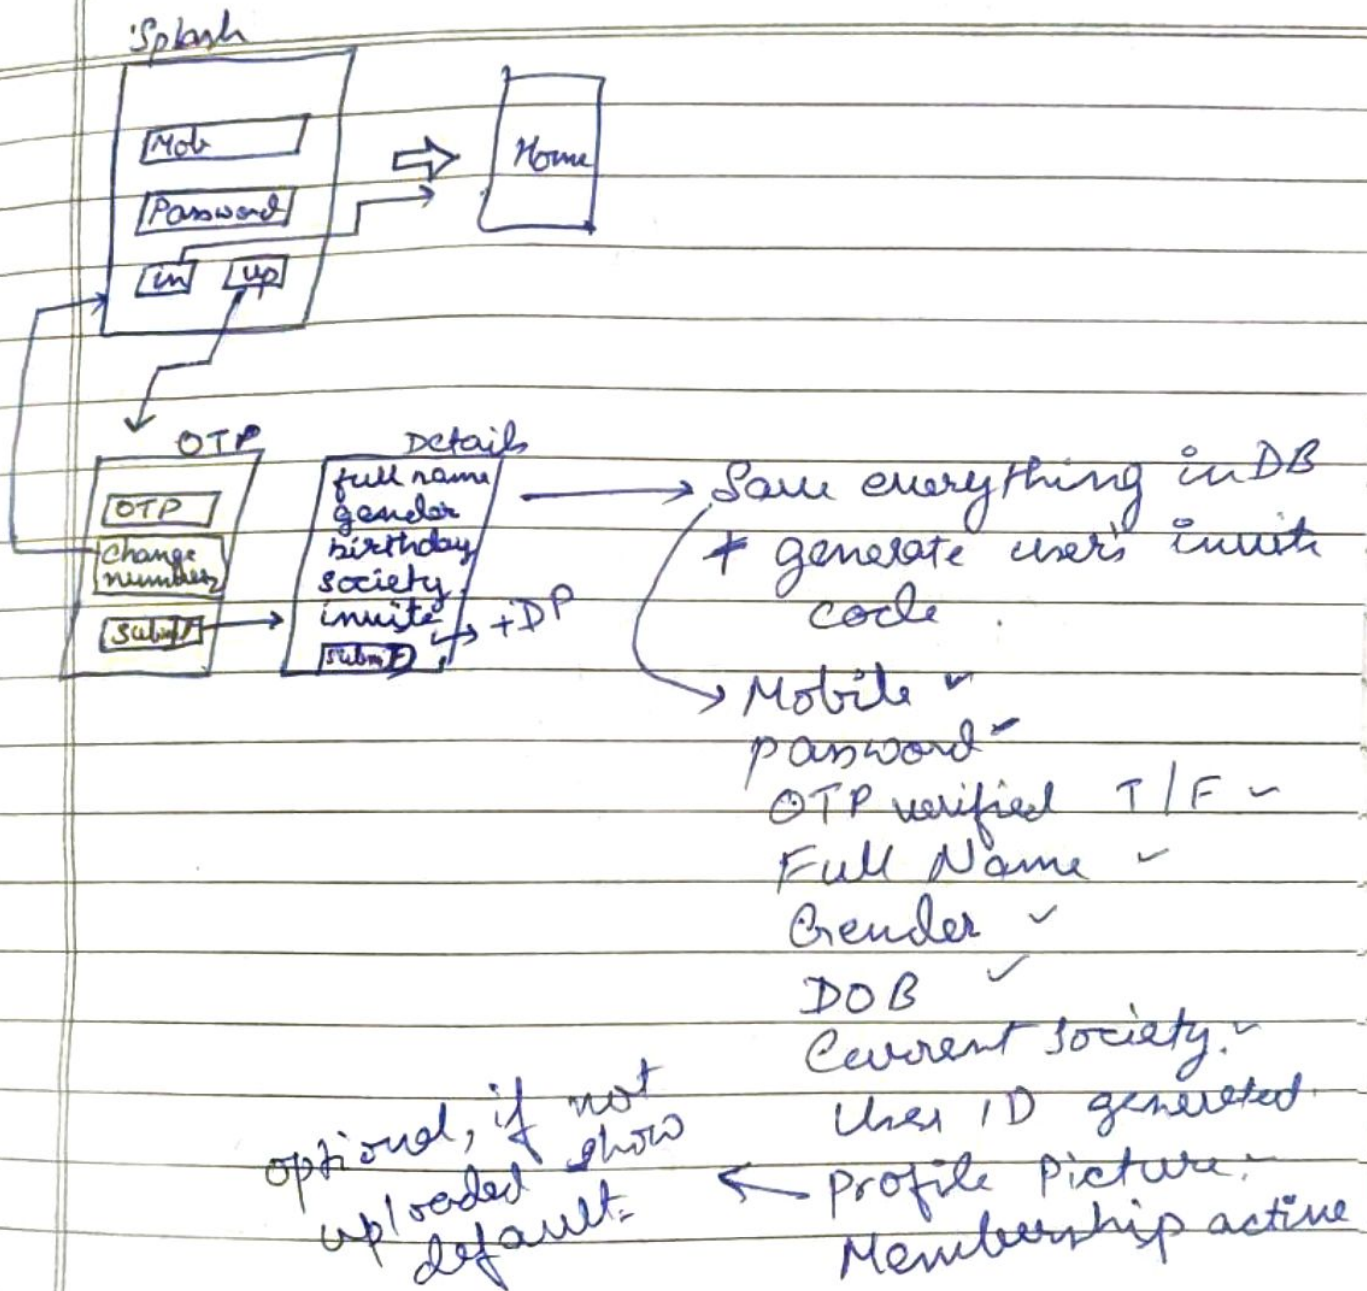 Splash
Mob
Password
in up
Home
OTP
OTP
Change
number
Submit
Details
full name
gender
birthday
society
invite
Submit
+DP
Save everything in DB
+ generate user's invite
code
Mobile
password
OTP verified T/F
Full Name
Gender
DOB
Current Society
User ID generated
Profile Picture
Membership active
optional, if not
uploaded show
default